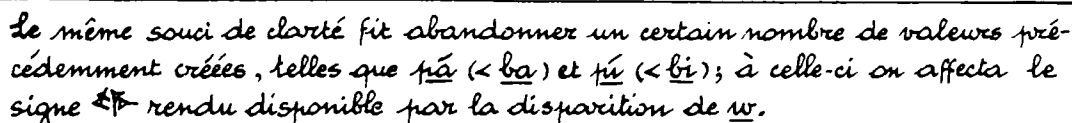 Le même souci de clarté fit abandonner un certain nombre de valeurs pré-
cédemment créées, telles que pá (< ba) et pí (< bi); à celle-ci on affecta le
signe 𒉿 rendu disponible par la disparition de w.